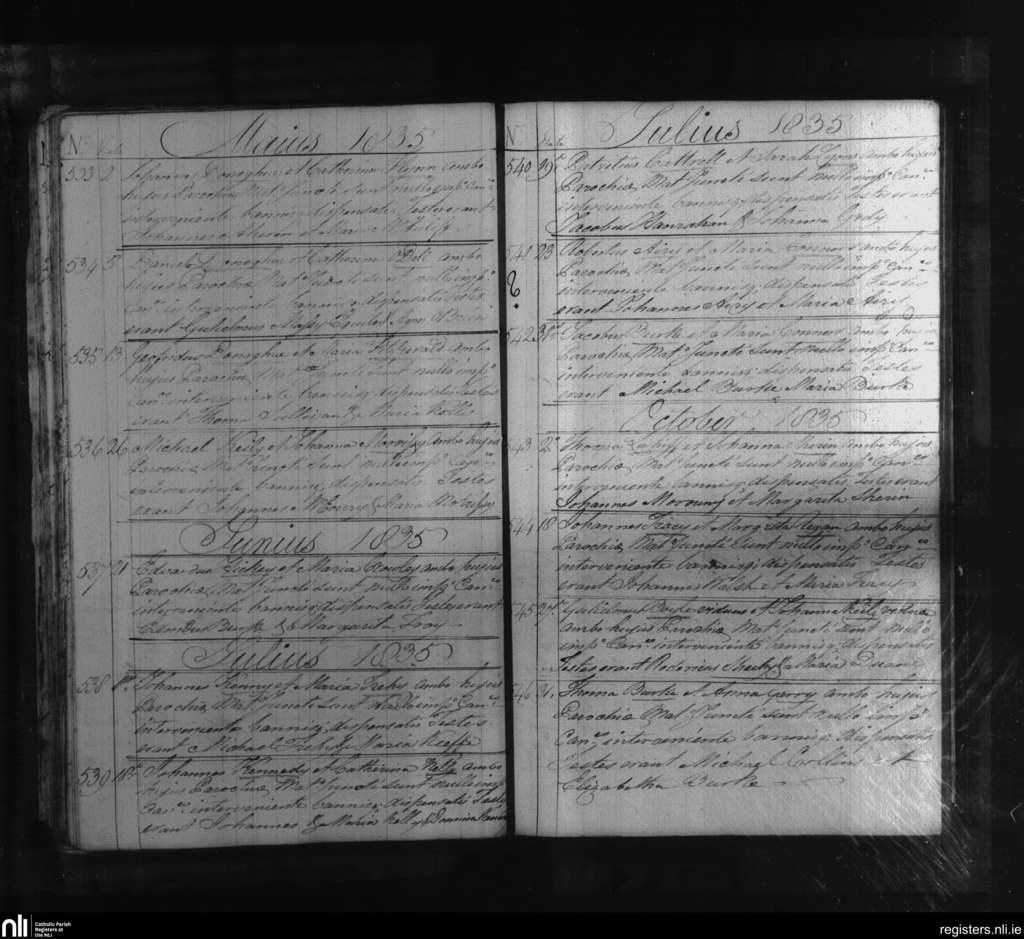 No Date Maius 1835
533 2 Donoghue et Catherina Flynn ambo
hujus Parochiæ Mat. Juncti Sunt nullo imp. Can.
interveniente bannis, dispensatis Testes erant
Johannes Aherin et Maria
534 5 Daniel Donoghue et Catherina ambo
hujus Parochiæ Mat. Juncti Sunt nullo imp.
Can. interveniente bannis, dispensatis Testes
erant Gulielmus
535 13 Donoghue et Maria FitzGerald ambo
hujus Parochiæ Mat. Juncti Sunt nullo imp.
Can. interveniente bannis, dispensatis Testes
erant Thoma Sullivan & Maria
536 26 Michael Kiely et Johanna Morrissy ambo hujus
Parochiæ Mat. Juncti Sunt nullo imp. Can.
interveniente bannis, dispensatis Testes
erant Johannes & Maria Morrissy
Junius 1835
537 21 Hickey et Maria Rowley ambo hujus
Parochiæ Mat. Juncti Sunt nullo imp. Can.
interveniente bannis, dispensatis Testes erant
Burke & Margarita
Julius 1835
538 Johannes Kenny et Maria ambo hujus
Parochiæ Mat. Juncti Sunt nullo imp. Can.
interveniente bannis, dispensatis Testes
erant Michael & Maria Keeffe
539 18 Johannes Kennedy et Catherina Kelly ambo
hujus Parochiæ Mat. Juncti Sunt nullo imp.
Can. interveniente bannis, dispensatis Testes
erant Johannes & Maria Kelly &
No Date Julius 1835
540 19 Cattrell et Sarah Lyons ambo hujus
Parochiæ Mat. Juncti Sunt nullo imp. Can.
interveniente bannis, dispensatis Testes erant
Jacobus Hanrahan & Johanna Grady
541 23 Robertus Airy et Maria Connors ambo hujus
Parochiæ Mat. Juncti Sunt nullo imp. Can.
interveniente bannis, dispensatis Testes
erant Johannes Airy et Maria
542 31 Jacobus Burke et Maria Connors ambo hujus
Parochiæ Mat. Juncti Sunt nullo imp. Can.
interveniente bannis, dispensatis Testes
erant Michael Burke Maria Burke
October 1835
543 2 Thoma et Johanna Sherin ambo hujus
Parochiæ Mat. Juncti Sunt nullo imp. Can.
interveniente bannis, dispensatis Testes erant
Johannes et Margarita Sherin
544 18 Johannes Tracy et Margarita Regan ambo hujus
Parochiæ Mat. Juncti Sunt nullo imp. Can.
interveniente bannis, dispensatis Testes
erant Johannes Walsh et Maria Tracy
545 27 viduus et Johanna Kiely vidua
ambo hujus Parochiæ Mat. Juncti Sunt nullo
imp. Can. interveniente bannis, dispensatis
Testes erant Sheehy & Maria Duane
546 Thoma Burke et Anna ambo hujus
Parochiæ Mat. Juncti Sunt nullo imp.
Can. interveniente bannis, dispensatis
Testes erant Michael et
Elizabetha Burke
nli Catholic Parish
Registers at
the NLI
registers.nli.ie